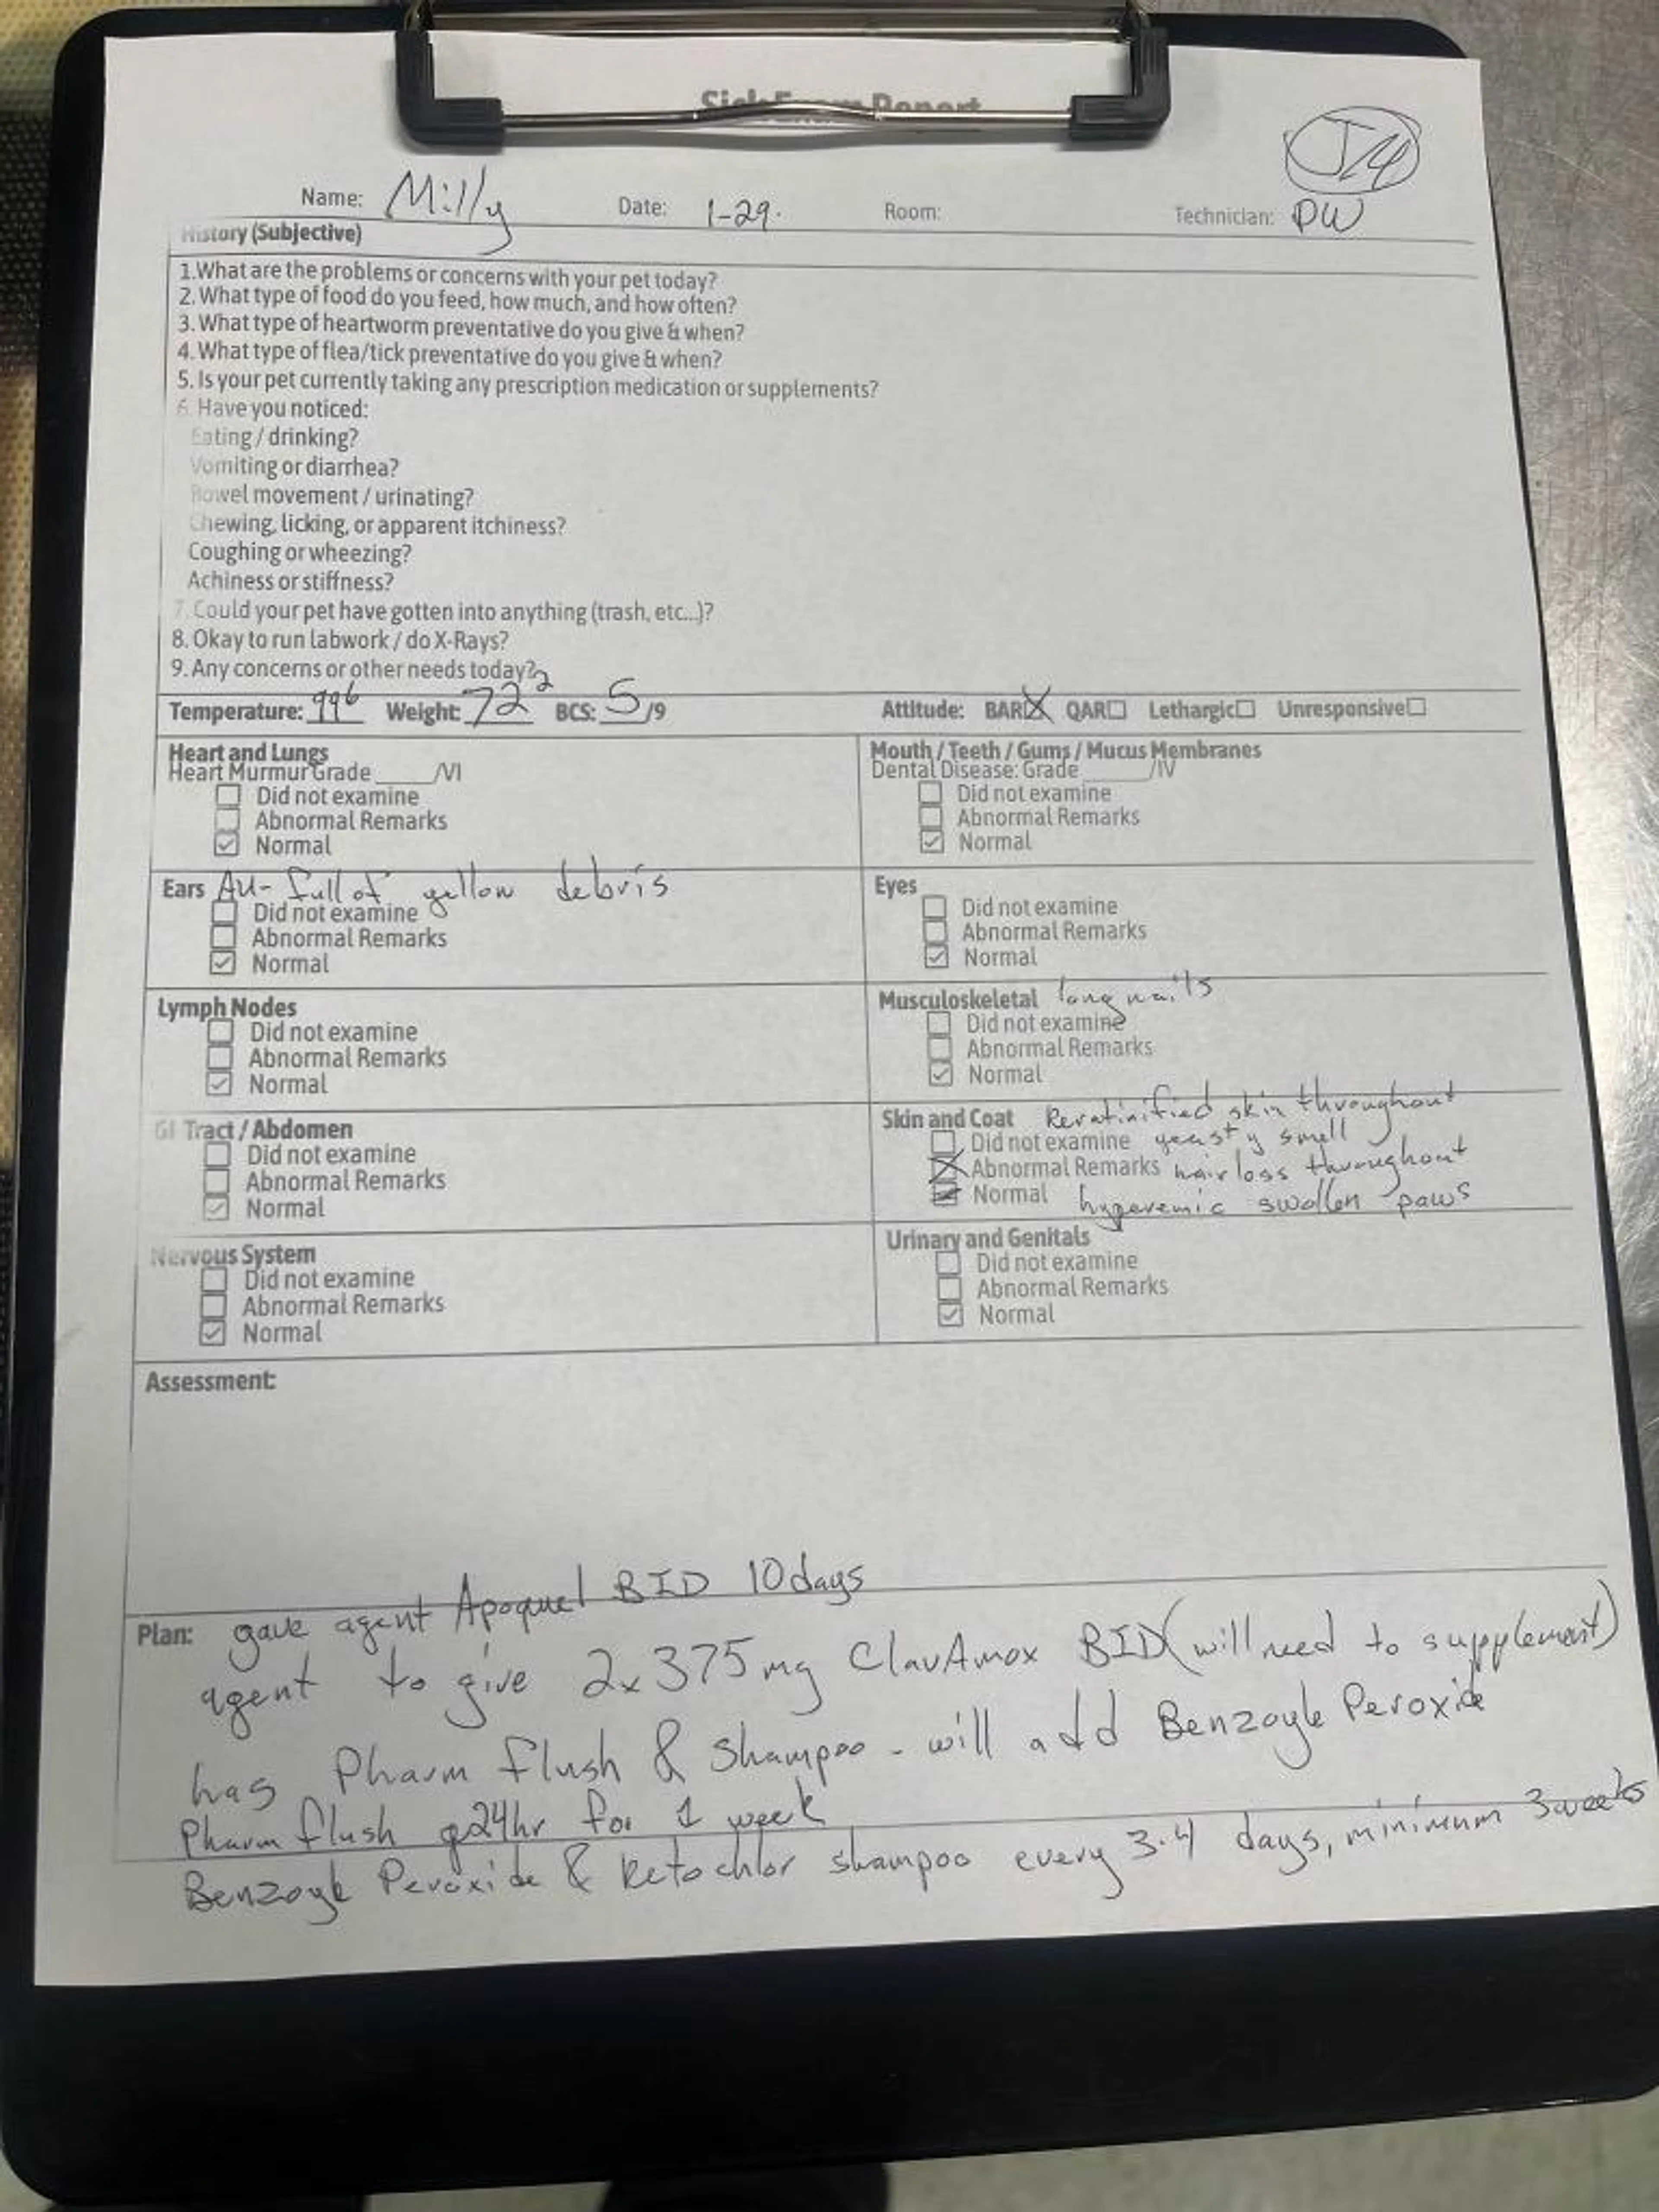 Sick Exam Report
J4
Name: Milly Date: 1-29. Room: Technician: DW
History (Subjective)
1.What are the problems or concerns with your pet today?
2. What type of food do you feed, how much, and how often?
3. What type of heartworm preventative do you give & when?
4. What type of flea/tick preventative do you give & when?
5. Is your pet currently taking any prescription medication or supplements?
6. Have you noticed:
Eating / drinking?
Vomiting or diarrhea?
Bowel movement / urinating?
Chewing, licking, or apparent itchiness?
Coughing or wheezing?
Achiness or stiffness?
7. Could your pet have gotten into anything (trash, etc...)?
8. Okay to run labwork / do X-Rays?
9. Any concerns or other needs today?
Temperature: 99⁶ Weight: 72² BCS: 5/9 Attitude: BAR QAR Lethargic Unresponsive
Heart and Lungs
Heart Murmur Grade ____/VI
Did not examine
Abnormal Remarks
Normal
Mouth / Teeth / Gums / Mucus Membranes
Dental Disease: Grade ____/IV
Did not examine
Abnormal Remarks
Normal
Ears AU- full of yellow debris
Did not examine
Abnormal Remarks
Normal
Eyes
Did not examine
Abnormal Remarks
Normal
Lymph Nodes
Did not examine
Abnormal Remarks
Normal
Musculoskeletal long nails
Did not examine
Abnormal Remarks
Normal
GI Tract / Abdomen
Did not examine
Abnormal Remarks
Normal
Skin and Coat Keratinified skin throughout
Did not examine yeasty smell
Abnormal Remarks hair loss throughout
Normal hyperemic swollen paws
Nervous System
Did not examine
Abnormal Remarks
Normal
Urinary and Genitals
Did not examine
Abnormal Remarks
Normal
Assessment:
Plan: gave agent Apoquel BID 10 days
agent to give 2x375mg ClavAmox BID (will need to supplement)
has Pharm flush & Shampoo - will add Benzoyle Peroxide
Pharm flush q24hr for 1 week
Benzoyle Peroxide & Ketochlor shampoo every 3-4 days, minimum 3 weeks